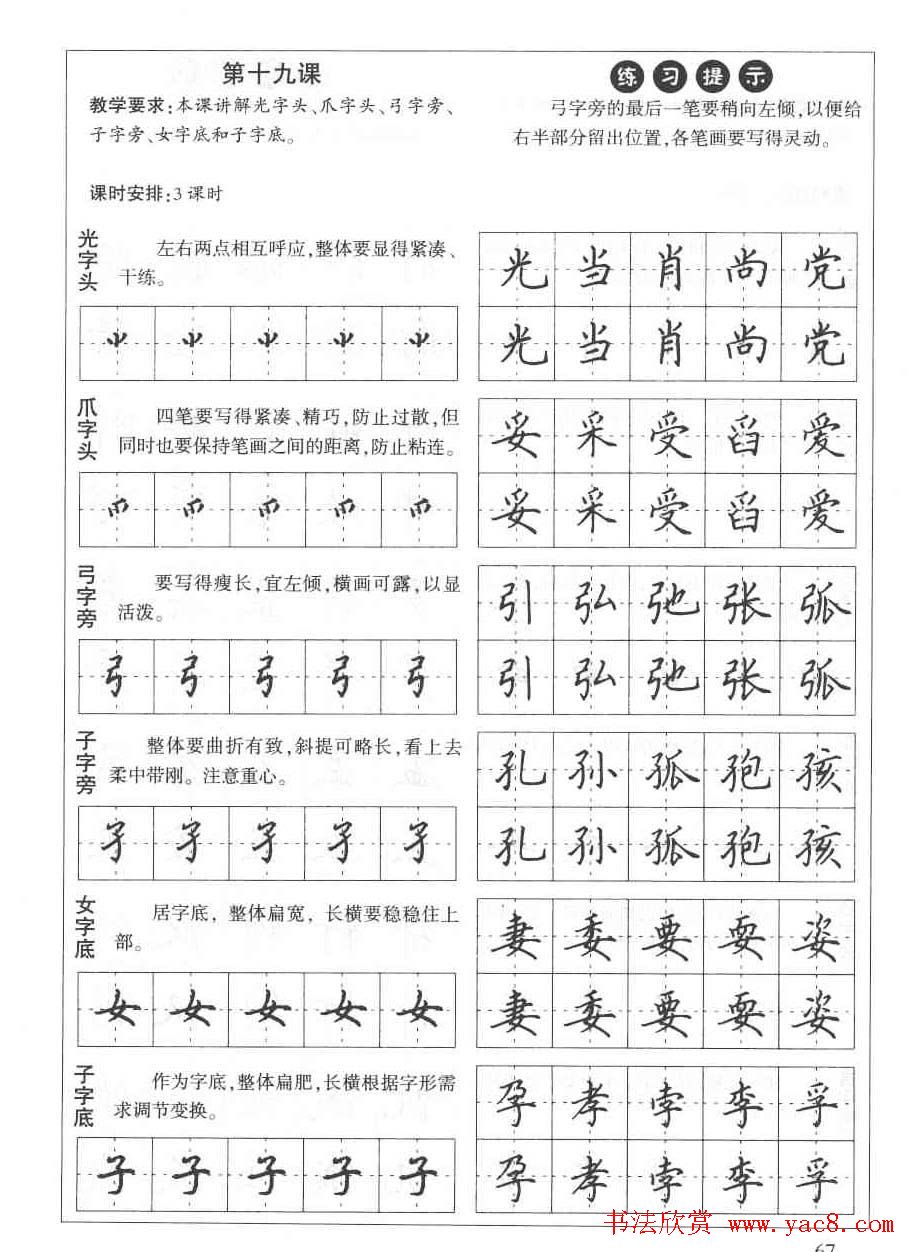 第十九课
教学要求:本课讲解光字头、爪字头、弓字旁、
子字旁、女字底和子字底。
课时安排:3课时
练习提示
弓字旁的最后一笔要稍向左倾,以便给
右半部分留出位置,各笔画要写得灵动。
光字头
左右两点相互呼应,整体要显得紧凑、
干练。
光当肖尚党
光当肖尚党
爪字头
四笔要写得紧凑、精巧,防止过散,但
同时也要保持笔画之间的距离,防止粘连。
爫爫爫爫爫
妥采受舀爱
妥采受舀爱
弓字旁
要写得瘦长,宜左倾,横画可露,以显
活泼。
弓弓弓弓弓
引弘弛张弧
引弘弛张弧
子字旁
整体要曲折有致,斜提可略长,看上去
柔中带刚。注意重心。
孑孑孑孑孑
孔孙孤孢孩
孔孙孤孢孩
女字底
居字底,整体扁宽,长横要稳稳住上
部。
女女女女女
妻委要耍姿
妻委要耍姿
子字底
作为字底,整体扁肥,长横根据字形需
求调节变换。
子子子子子
孕孝孛李孚
孕孝孛李孚
书法欣赏 www.yac8.com
67